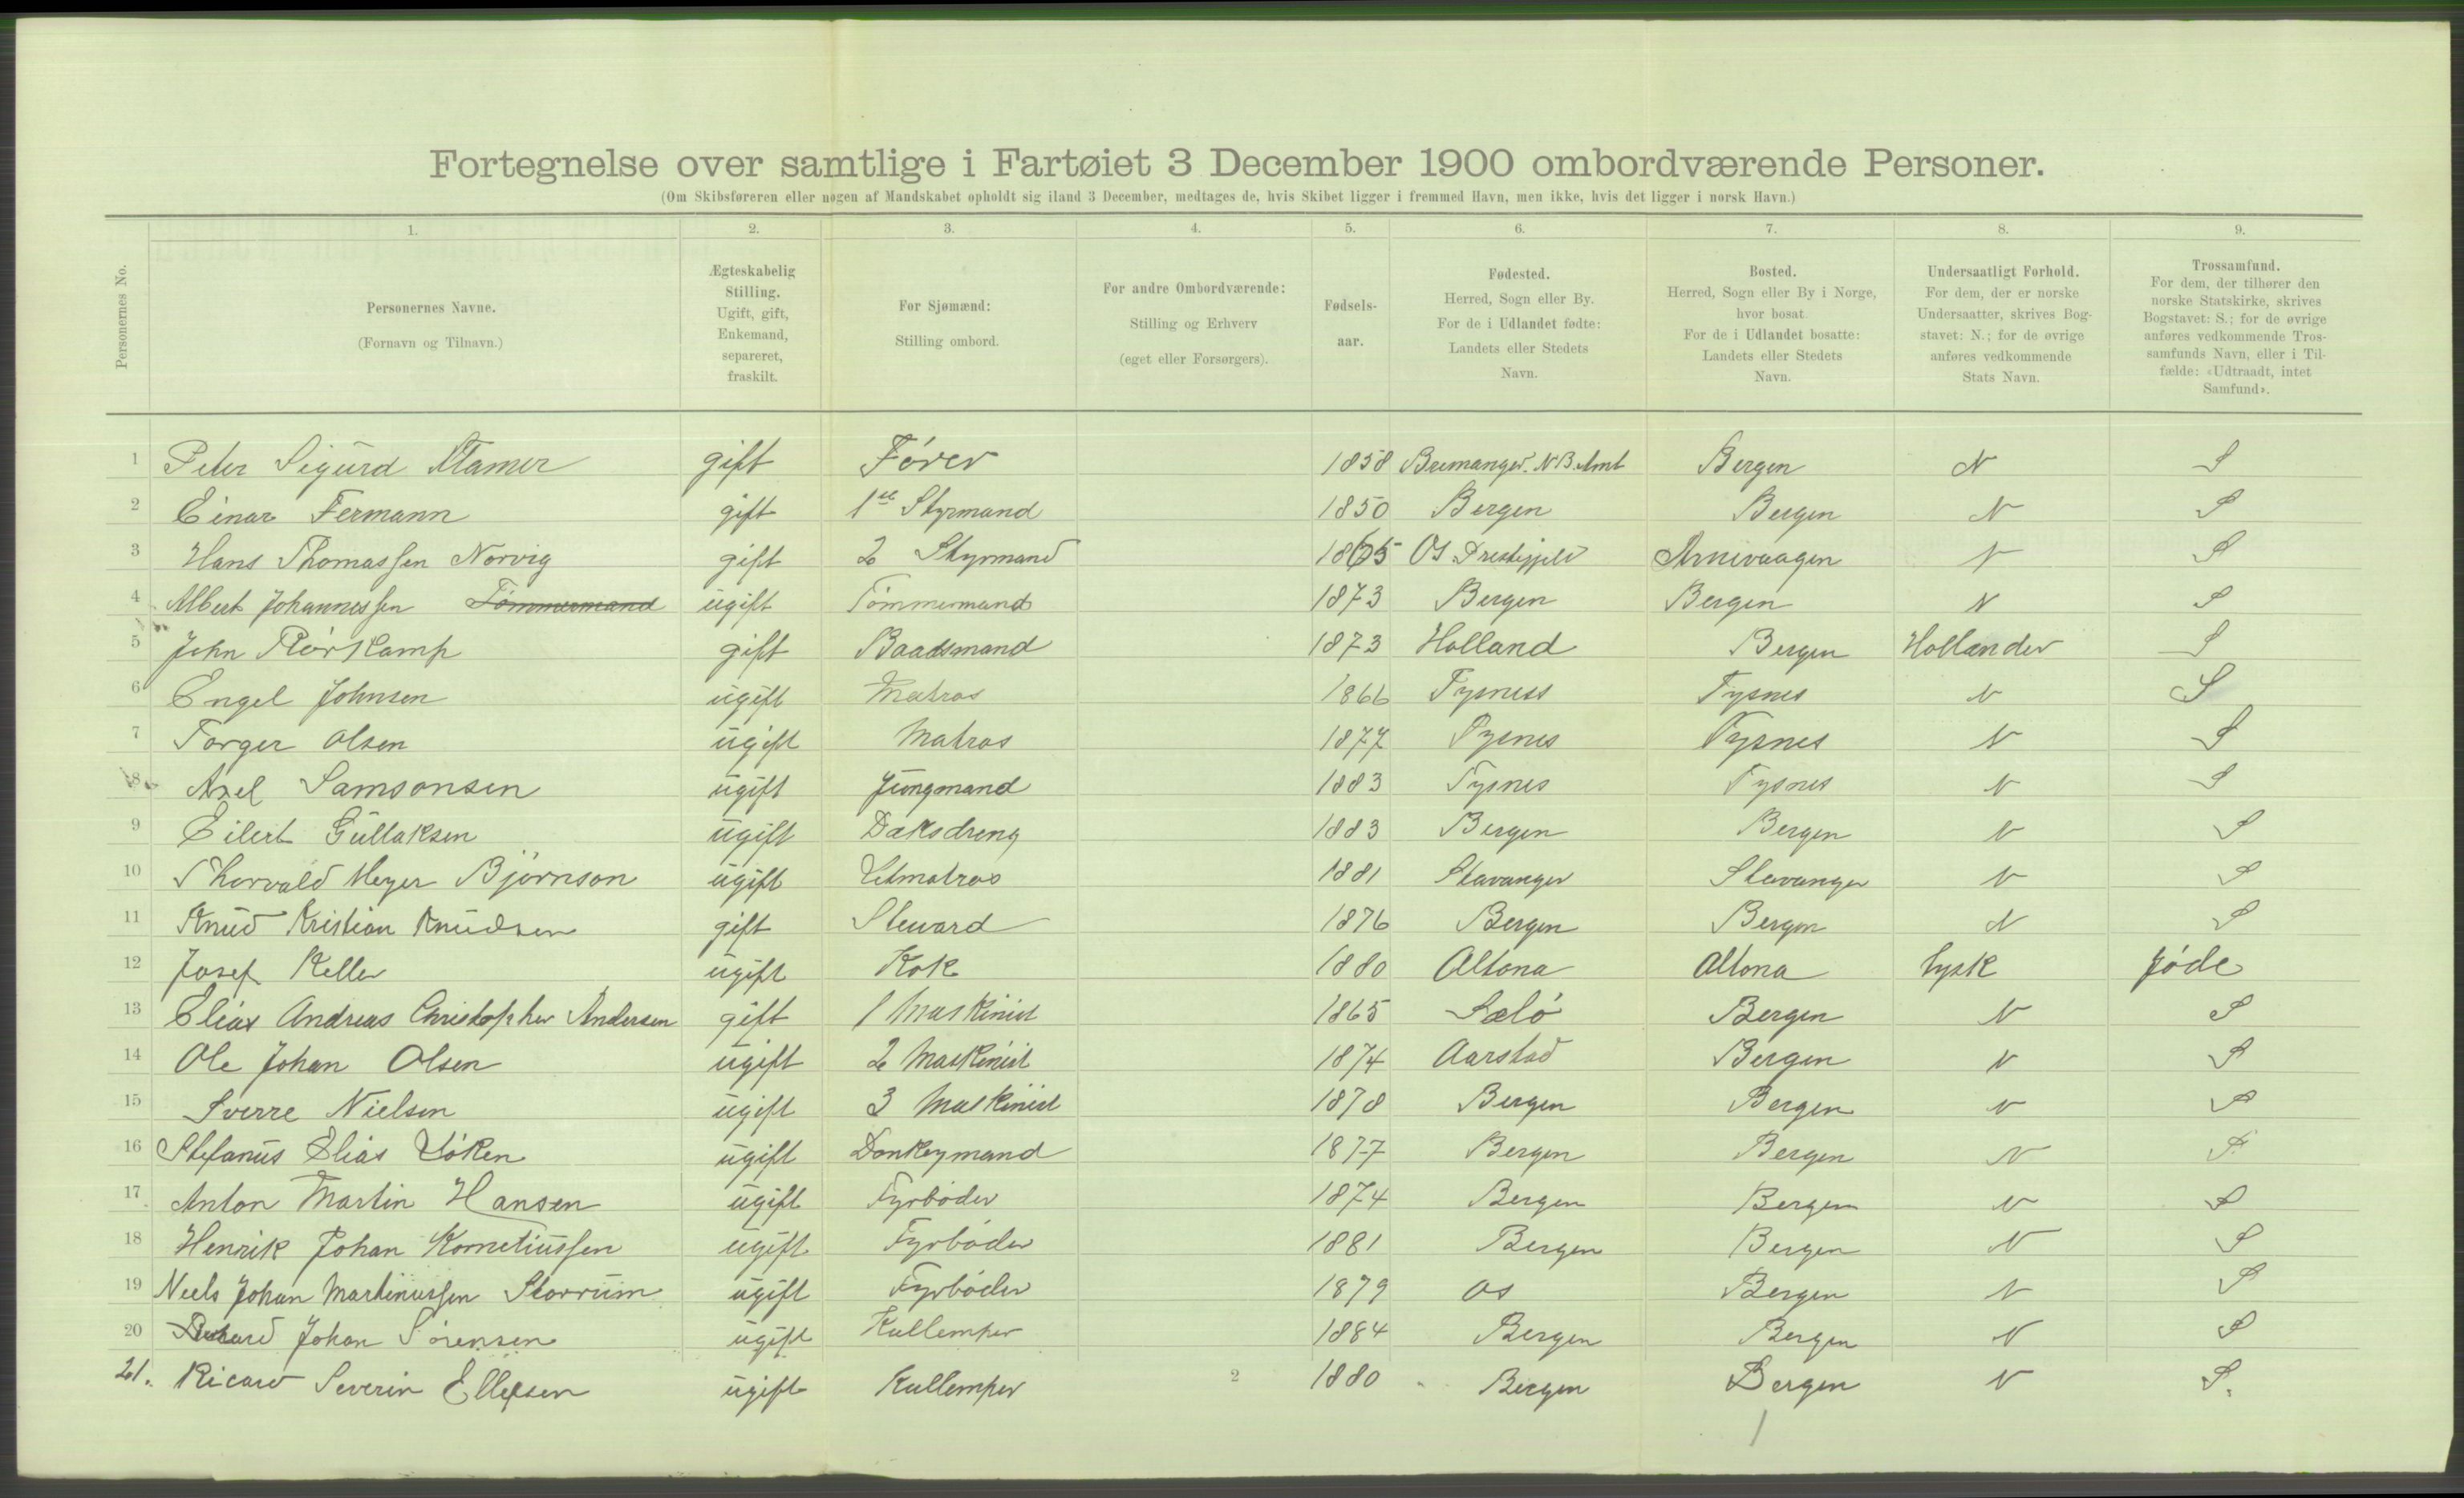 Fortegnelse over samtlige i Fartøiet 3 December 1900 ombordværende Personer.
(Om Skibsføreren eller nogen af Mandskabet opholdt sig iland 3 December, medtages de, hvis Skibet ligger i fremmed Havn, men ikke, hvis det ligger i norsk Havn.)
Personernes No.
1. Personernes Navne. (Fornavn og Tilnavn.)
2. Ægteskabelig Stilling. Ugift, gift, Enkemand, separeret, fraskilt.
3. For Sjømænd: Stilling ombord.
4. For andre Ombordværende: Stilling og Erhverv (eget eller Forsørgers).
5. Fødsels-aar.
6. Fødested. Herred, Sogn eller By. For de i Udlandet fødte: Landets eller Stedets Navn.
7. Bosted. Herred, Sogn eller By i Norge, hvor bosat. For de i Udlandet bosatte: Landets eller Stedets Navn.
8. Undersaatligt Forhold. For dem, der er norske Undersaatter, skrives Bogstavet: N.; for de øvrige anføres vedkommende Stats Navn.
9. Trossamfund. For dem, der tilhører den norske Statskirke, skrives Bogstavet: S.; for de øvrige anføres vedkommende Trossamfunds Navn, eller i Tilfælde: «Udtraadt, intet Samfund».
1 Peter Sigurd Stamer gift Fører 1858 Bremanger. N B. Amt Bergen N S
2 Einar Fermann gift 1ste Styrmand 1850 Bergen Bergen N S
3 Hans Thomassen Norvig gift 2 Styrmand 1865 Os Prestegjeld Arnevaagen N S
4 Albert Johannessen Tømmermand ugift Tømmermand 1873 Bergen Bergen N S
5 John gift Baadsmand 1873 Holland Bergen Hollander S
6 Engel Johnsen ugift Matros 1866 Tysness Tysnes N S
7 Torger Olsen ugift Matros 1877 Tysnes Tysnes N S
8 Axel Samsonsen ugift Jungmand 1883 Tysnes Tysnes N S
9 Eilert Gullaksen ugift Daksdreng 1883 Bergen Bergen N S
10 Thorvald Meyer Bjørnson ugift Letmatros 1881 Stavanger Stavanger N S
11 Knud Kristian Knudsen gift Steward 1876 Bergen Bergen N S
12 Josef Keller ugift Kok 1880 Altona Altona tysk Jøde
13 Elias Andreas Christopher Andersen gift 1 Maskinist 1865 Sælø Bergen N S
14 Ole Johan Olsen ugift 2 Maskinist 1874 Aarstad Bergen N S
15 Sverre Nielsen ugift 3 Maskinist 1878 Bergen Bergen N S
16 Stefanus Elias Løken ugift Donkeymand 1877 Bergen Bergen N S
17 Anton Martin Hansen ugift Fyrbøder 1874 Bergen Bergen N S
18 Henrik Johan Korneliussen ugift Fyrbøder 1881 Bergen Bergen N S
19 Niels Johan Martinussen Storrum ugift Fyrbøder 1879 Os Bergen N S
20 Johan Sørensen ugift Kullemper 1884 Bergen Bergen N S
21. Ricard Severin Ellefsen ugift Kullemper 2 1880 Bergen Bergen N S.